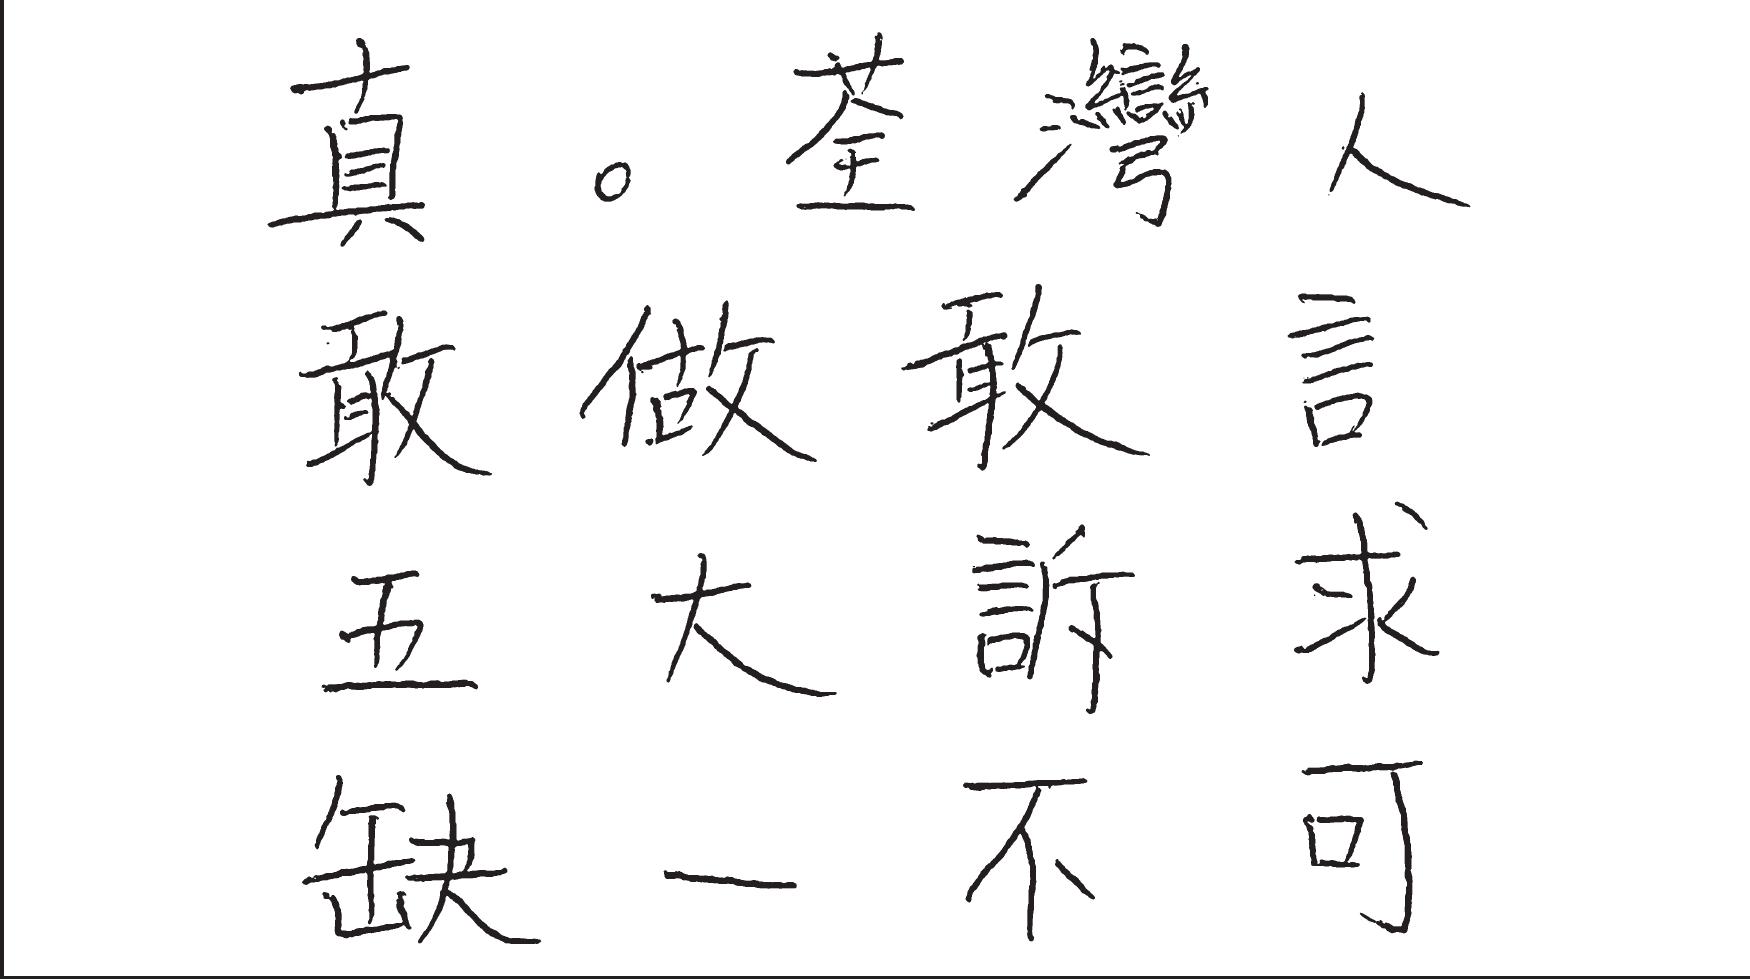 真。荃灣人
敢做敢言
五大訴求
缺一不可